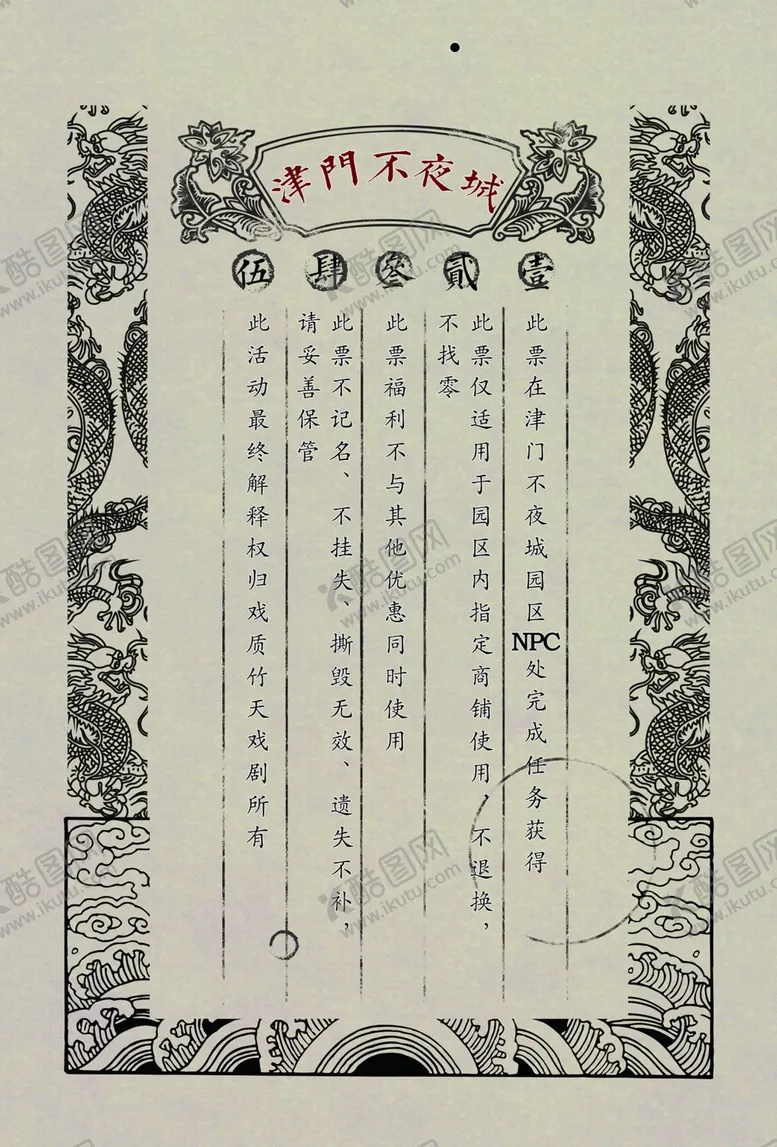 津門不夜城
壹
此票在津门不夜城园区NPC处完成任务获得
貳
此票仅适用于园区内指定商铺使用、不退换，
不找零
叄
此票福利不与其他优惠同时使用
肆
此票不记名、不挂失、撕毁无效、遗失不补，
请妥善保管
伍
此活动最终解释权归戏质竹天戏剧所有
酷图网
www.ikutu.com